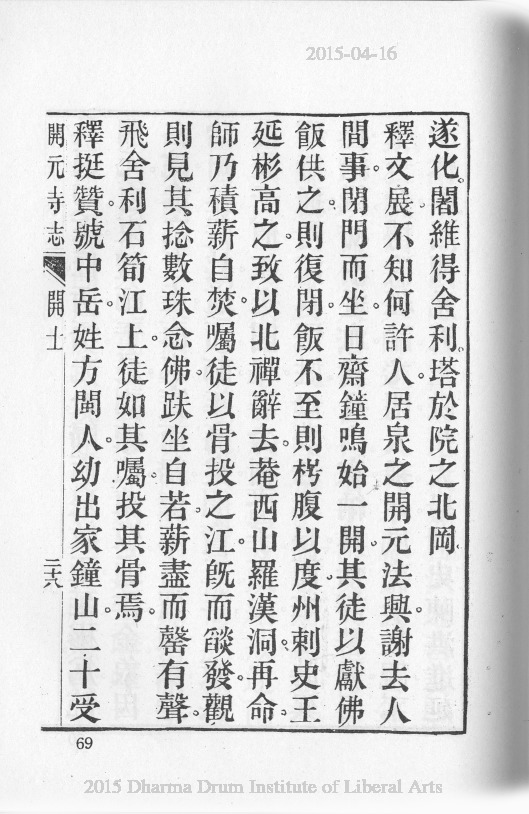 2015-04-16
遂化。闍維得舍利。塔於院之北岡。
釋文展。不知何許人。居泉之開元法興。謝去人
間事。閉門而坐。日齋鐘鳴始一開。其徒以獻佛
飯供之。則復閉。飯不至則枵腹以度。州刺史王
延彬高之。致以北禪。辭去。菴西山羅漢洞。再命。
師乃積薪自焚。囑徒以骨投之江。旣而燄發。觀
則見其捻數珠念佛。趺坐自若。薪盡而罄有聲。
飛舍利石筍江上。徒如其囑。投其骨焉。
釋挺贊。號中岳。姓方。閩人。幼出家鐘山。二十受
開元寺志 開士 三六
69
2015 Dharma Drum Institute of Liberal Arts